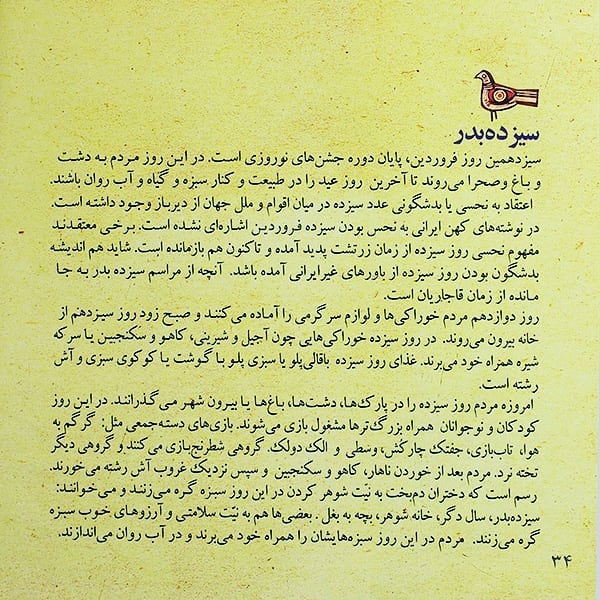 سیزده‌بدر
سیزدهمین روز فروردین، پایان دوره جشن‌های نوروزی است. در این روز مردم به دشت
و باغ وصحرا می‌روند تا آخرین روز عید را در طبیعت و کنار سبزه و گیاه و آب روان باشند.
اعتقاد به نحسی یا بدشگونی عدد سیزده در میان اقوام و ملل جهان از دیرباز وجود داشته است.
در نوشته‌های کهن ایرانی به نحس بودن سیزده فروردین اشاره‌ای نشده است. برخی معتقدند
مفهوم نحسی روز سیزده از زمان زرتشت پدید آمده و تاکنون هم بازمانده است. شاید هم اندیشه
بدشگون بودن روز سیزده از باورهای غیرایرانی آمده باشد. آنچه از مراسم سیزده بدر به جا
مانده از زمان قاجاریان است.
روز دوازدهم مردم خوراکی‌ها و لوازم سرگرمی را آماده می‌کنند و صبح زود روز سیزدهم از
خانه بیرون می‌روند. در روز سیزده خوراکی‌هایی چون آجیل و شیرینی، کاهو و سکنجبین یا سرکه
شیره همراه خود می‌برند. غذای روز سیزده باقالی‌پلو یا سبزی پلو با گوشت یا کوکوی سبزی و آش
رشته است.
امروزه مردم روز سیزده را در پارک‌ها، دشت‌ها، باغ‌ها یا بیرون شهر می‌گذرانند. در این روز
کودکان و نوجوانان همراه بزرگ‌ترها مشغول بازی می‌شوند. بازی‌های دسته‌جمعی مثل: گرگم به
هوا، تاب‌بازی، جفتک چارکُش، وَسَطی و الک دولک. گروهی شطرنج‌بازی می‌کنند و گروهی دیگر
تخته نرد. مردم بعد از خوردن ناهار، کاهو و سکنجبین و سپس نزدیک غروب آش رشته می‌خورند.
رسم است که دختران دم‌بخت به نیّت شوهر کردن در این روز سبزه گره می‌زنند و می‌خوانند:
سیزده‌بدر، سال دگر، خانه شوهر، بچه به بغل. بعضی‌ها هم به نیّت سلامتی و آرزوهای خوب سبزه
گره می‌زنند. مردم در این روز سبزه‌هایشان را همراه خود می‌برند و در آب روان می‌اندازند.
۳۴